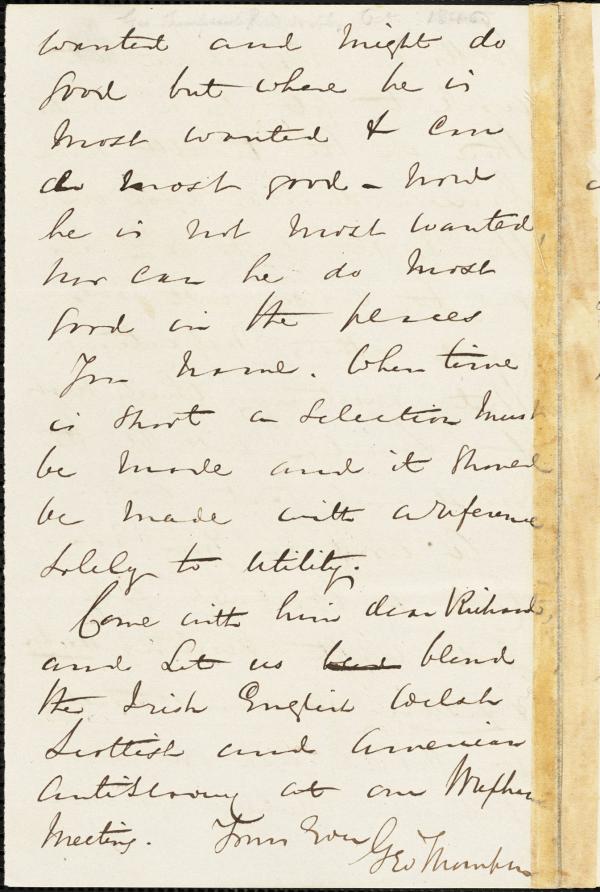 wanted and might do
good but where he is
most wanted & can
do most good - now
he is not most wanted
nor can he do most
good in the places
You name. When time
is short a selection must
be made and it should
be made with a reference
solely to utility.
Come with him dear Richard,
and let us blend
the Irish English Welsh
Scottish and American
antislavery at our
Meeting. Yours Ever
Geo Thompson